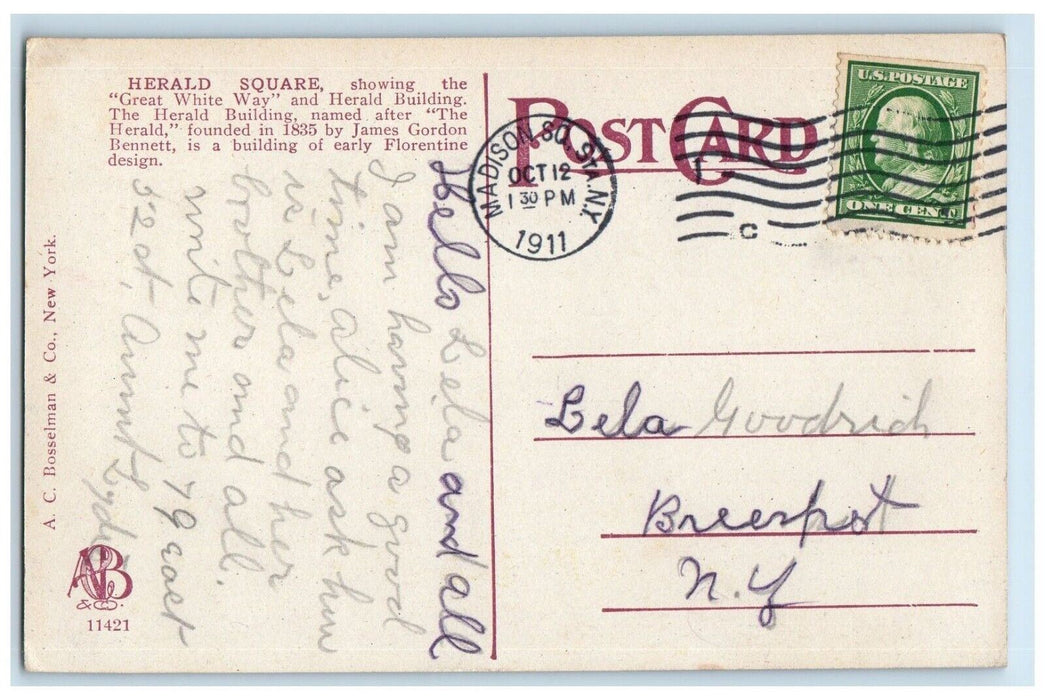 HERALD SQUARE, showing the
"Great White Way" and Herald Building.
The Herald Building, named after "The
Herald," founded in 1835 by James Gordon
Bennett, is a building of early Florentine
design.
POST CARD
MADISON SQ. STA. N.Y.
OCT 12
1 30 PM
1911
C
U.S. POSTAGE
ONE CENT
Hello Lela and all
I am having a good
time, alice ask him
is Lela and her
brother and all.
write me to 79 east
52 st, Aunt Lydia
Lela Goodrich
Breesport
N.Y
A. C. Bosselman & Co., New York.
ACB
& CO.
11421